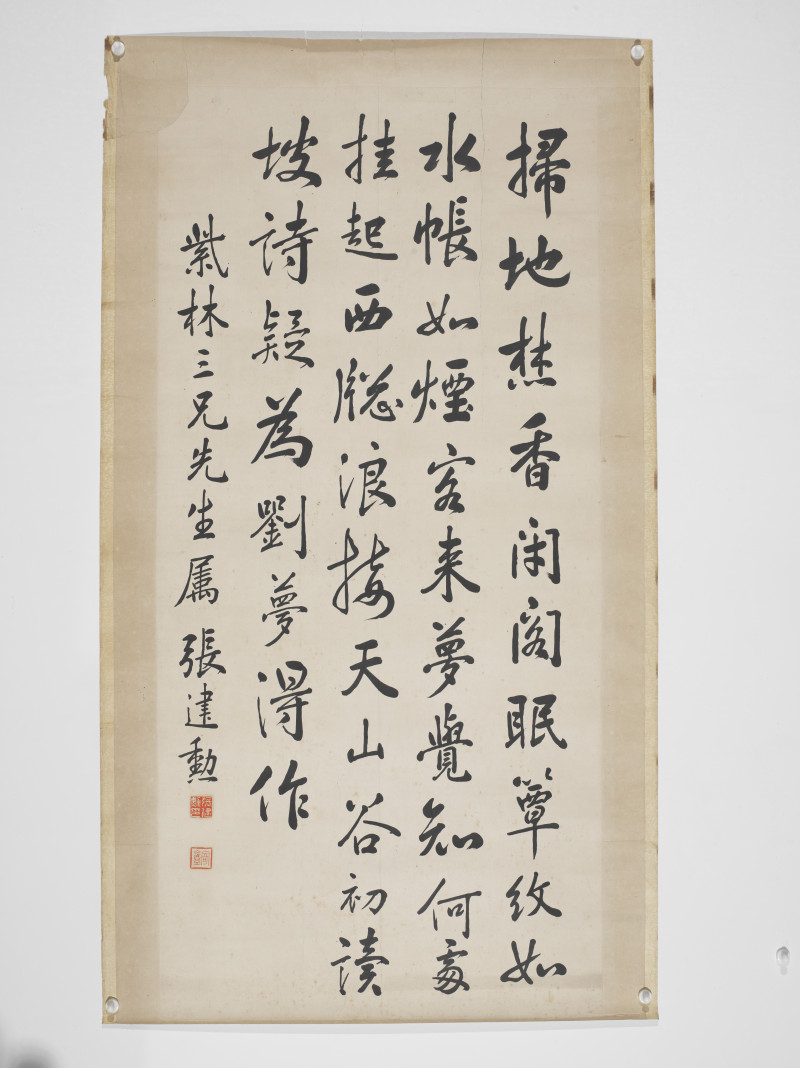 掃地焚香閉閣眠簟紋如
水帳如煙客来夢覺知何處
挂起西牕浪接天山谷初讀
坡詩疑為劉夢得作
紫林三兄先生属 張建勳